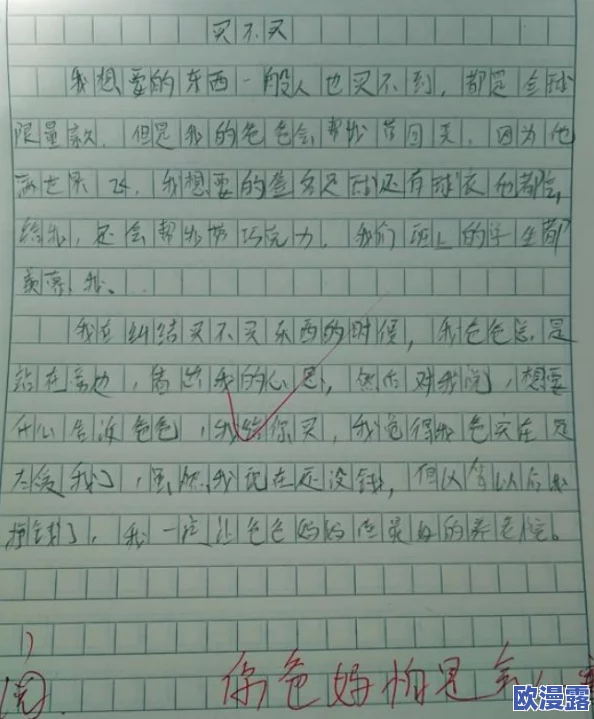 买不买
我想要的东西一般人也买不到，都是全球
限量款，但是我的爸爸会帮我 回来，因为他
我想要的签名足球还有球衣他都会
给我，还会帮我带巧克力，我们班上的学生都
羡慕我。
我在纠结买不买东西的时候，我爸爸总是
站在旁边，看出我的心思，然后对我说，想要
什么告诉爸爸，我给你买，我觉得我爸实在是
太爱我了，虽然我现在还没钱，但 以后
挣钱了，我一定让爸爸妈妈 最好的养老院。
你爸妈怕是
欧漫露